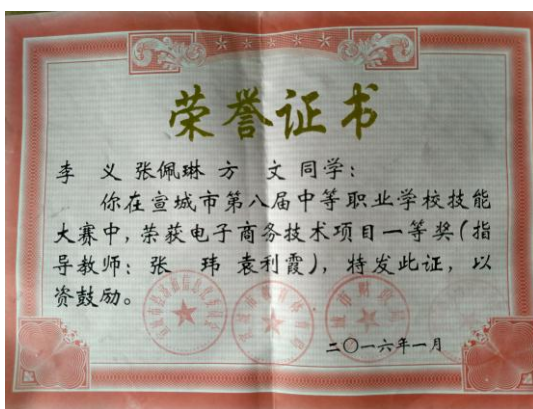 荣誉证书
李 义 张佩琳 方 文 同学：
你在宣城市第八届中等职业学校技能
大赛中，荣获电子商务技术项目一等奖（指
导教师：张 玮 袁利霞），特发此证，以
资鼓励。
二〇一六年一月